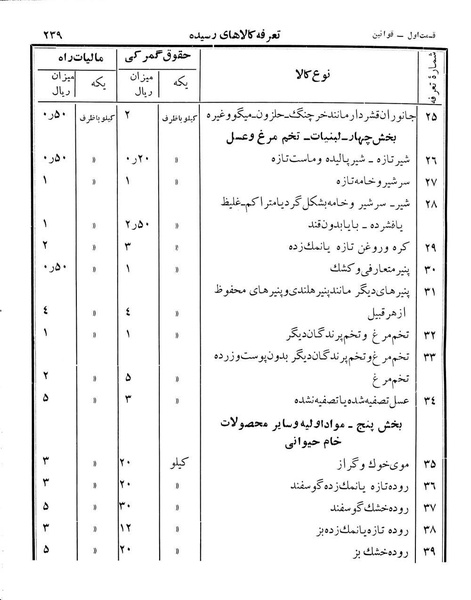 قسمت اول – قوانین تعرفه کالاهای رسیده ۲۳۹
شمارهٔ تعرفه نوع کالا حقوق گمرکی مالیات راه
یکه میزان ریال یکه میزان ریال
۲۵ جانوران قشردار مانند خرچنگ – حلزون – میگو و غیره کیلو باظرف ۲ کیلو باظرف ۰ر۵۰
بخش چهار – لبنیات – تخم مرغ و عسل
۲۶ شیر تازه – شیر پالیده و ماست تازه » ۰ر۲۰ » ۰ر۵۰
۲۷ سرشیر و خامه تازه » ۱ » ۱
۲۸ شیر – سرشیر و خامه بشکل گرد یا متراکم – غلیظ
یا فشرده – با یا بدون قند » ۲ر۵۰ » ۱
۲۹ کره و روغن تازه یا نمک زده » ۳ » ۲
۳۰ پنیر متعارفی و کشک » ۱ » ۰ر۵۰
۳۱ پنیرهای دیگر مانند پنیر هلندی و پنیرهای محفوظ
از هر قبیل » ۴ » ۴
۳۲ تخم مرغ و تخم پرندگان دیگر » ۱ » ۱
۳۳ تخم مرغ و تخم پرندگان دیگر بدون پوست و زرده
تخم مرغ » ۵ » ۲
۳۴ عسل تصفیه شده یا تصفیه نشده » ۳ » ۵
بخش پنج – مواد اولیه و سایر محصولات
خام حیوانی
۳۵ موی خوک و گراز کیلو ۲۰ » ۳
۳۶ روده تازه یا نمک زده گوسفند » ۲۰ » ۳
۳۷ روده خشک گوسفند » ۳۰ » ۵
۳۸ روده تازه یا نمک زده بز » ۱۲ » ۳
۳۹ روده خشک بز » ۲۰ » ۵